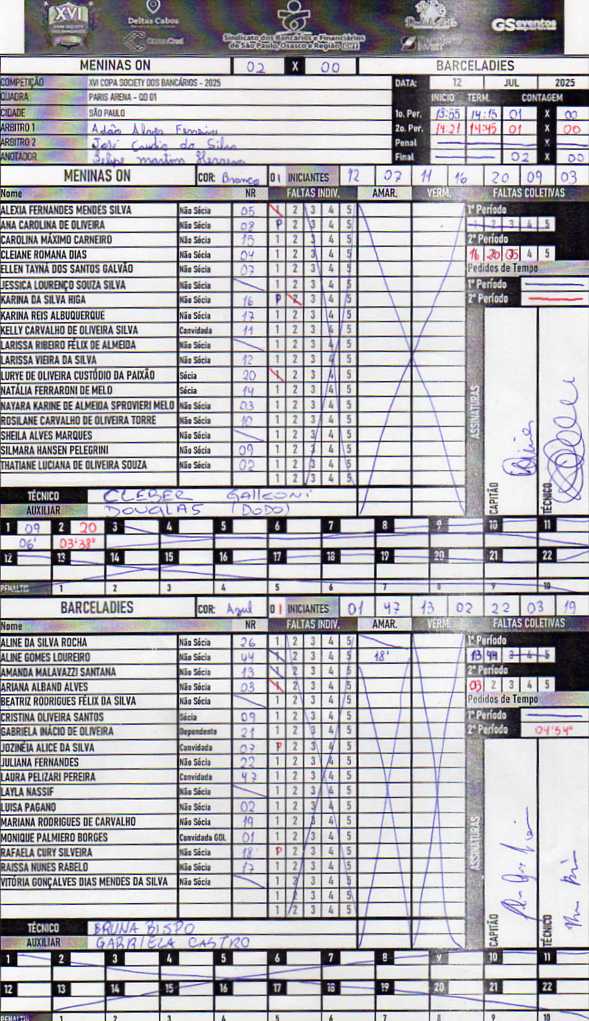 XVI
Deltas Cabos
Sindicato dos Bancários e Financiários
de São Paulo, Osasco e Região CUT
GSeventos
MENINAS ON 02 X 00 BARCELADIES
COMPETIÇÃO XVI COPA SOCIETY DOS BANCÁRIOS - 2025 DATA: 12 JUL 2025
QUADRA PARIS ARENA - QD 01 INICIO TERM. CONTAGEM
CIDADE SÃO PAULO 1o. Per. 13:55 14:15 01 X 00
ARBITRO 1 2o. Per. 14:21 14:45 01 X 00
ARBITRO 2 José Claudio da Silva Penal X
ANOTADOR Felipe Martins Final 02 X 00
MENINAS ON COR: Branco 0 1 INICIANTES 12 07 11 16 20 09 03
Nome NR FALTAS INDIV. AMAR. VERM. FALTAS COLETIVAS
ALEXIA FERNANDES MENDES SILVA Não Sócia 05 1 2 3 4 5 1º Período
ANA CAROLINA DE OLIVEIRA Não Sócia 08 P 2 3 4 5 1 2 3 4 5
CAROLINA MÁXIMO CARNEIRO Não Sócia 15 1 2 3 4 5 2º Período
CLEIANE ROMANA DIAS Não Sócia 04 1 2 3 4 5 16 20 05 4 5
ELLEN TAYNÁ DOS SANTOS GALVÃO Não Sócia 07 1 2 3 4 5 Pedidos de Tempo
JESSICA LOURENÇO SOUZA SILVA Não Sócia 1 2 3 4 5 1º Período
KARINA DA SILVA HIGA Não Sócia 16 P 2 3 4 5 2º Período
KARINA REIS ALBUQUERQUE Não Sócia 17 1 2 3 4 5
KELLY CARVALHO DE OLIVEIRA SILVA Convidada 11 1 2 3 4 5
LARISSA RIBEIRO FÉLIX DE ALMEIDA Não Sócia 1 2 3 4 5
LARISSA VIEIRA DA SILVA Não Sócia 12 1 2 3 4 5
LURYE DE OLIVEIRA CUSTÓDIO DA PAIXÃO Sócia 20 1 2 3 4 5
NATÁLIA FERRARONI DE MELO Sócia 14 1 2 3 4 5
NAYARA KARINE DE ALMEIDA SPROVIERI MELO Não Sócia 03 1 2 3 4 5
ROSILANE CARVALHO DE OLIVEIRA TORRE Não Sócia 10 1 2 3 4 5
SHEILA ALVES MARQUES Não Sócia 1 2 3 4 5
SILMARA HANSEN PELEGRINI Não Sócia 09 1 2 3 4 5
THATIANE LUCIANA DE OLIVEIRA SOUZA Não Sócia 02 1 2 3 4 5
1 2 3 4 5
ASSINATURAS
CAPITÃO
TÉCNICO
TÉCNICO CLEBER GALICONI
AUXILIAR DOUGLAS (DODO)
1 09 2 20 3 4 5 6 7 8 9 10 11
06' 03'38"
12 13 14 15 16 17 18 19 20 21 22
PENALTIS 1 2 3 4 5 6 7 8 9 10
BARCELADIES COR: Azul 0 1 INICIANTES 01 47 13 02 22 03 19
Nome NR FALTAS INDIV. AMAR. VERM. FALTAS COLETIVAS
ALINE DA SILVA ROCHA Não Sócia 26 1 2 3 4 5 1º Período
ALINE GOMES LOUREIRO Não Sócia 44 1 2 3 4 5 18' 13 44 3 4 5
AMANDA MALAVAZZI SANTANA Não Sócia 13 1 2 3 4 5 2º Período
ARIANA ALBAND ALVES Não Sócia 03 1 2 3 4 5 03 2 3 4 5
BEATRIZ RODRIGUES FÉLIX DA SILVA Não Sócia 1 2 3 4 5 Pedidos de Tempo
CRISTINA OLIVEIRA SANTOS Sócia 09 1 2 3 4 5 1º Período
GABRIELA INÁCIO DE OLIVEIRA Dependente 21 1 2 3 4 5 2º Período 04'54"
JOZINÉIA ALICE DA SILVA Convidada 07 P 2 3 4 5
JULIANA FERNANDES Não Sócia 22 1 2 3 4 5
LAURA PELIZARI PEREIRA Convidada 47 1 2 3 4 5
LAYLA NASSIF Não Sócia 1 2 3 4 5
LUISA PAGANO Não Sócia 02 1 2 3 4 5
MARIANA RODRIGUES DE CARVALHO Não Sócia 19 1 2 3 4 5
MONIQUE PALMIERO BORGES Convidada GOL 01 1 2 3 4 5
RAFAELA CURY SILVEIRA Não Sócia 18 P 2 3 4 5
RAISSA NUNES RABELO Não Sócia 17 1 2 3 4 5
VITÓRIA GONÇALVES DIAS MENDES DA SILVA Não Sócia 1 2 3 4 5
1 2 3 4 5
1 2 3 4 5
ASSINATURAS
CAPITÃO
TÉCNICO
TÉCNICO BRUNA BISPO
AUXILIAR GABRIELA CASTRO
1 2 3 4 5 6 7 8 9 10 11
12 13 14 15 16 17 18 19 20 21 22
PENALTIS 1 2 3 4 5 6 7 8 9 10